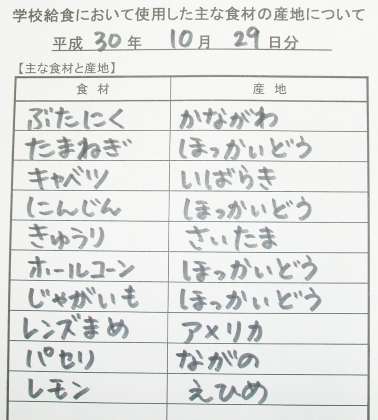 学校給食において使用した主な食材の産地について
平成 30 年 10 月 29 日分
【主な食材と産地】
食 材 産 地
ぶたにく かながわ
たまねぎ ほっかいどう
キャベツ いばらき
にんじん ほっかいどう
きゅうり さいたま
ホールコーン ほっかいどう
じゃがいも ほっかいどう
レンズまめ アメリカ
パセリ ながの
レモン えひめ